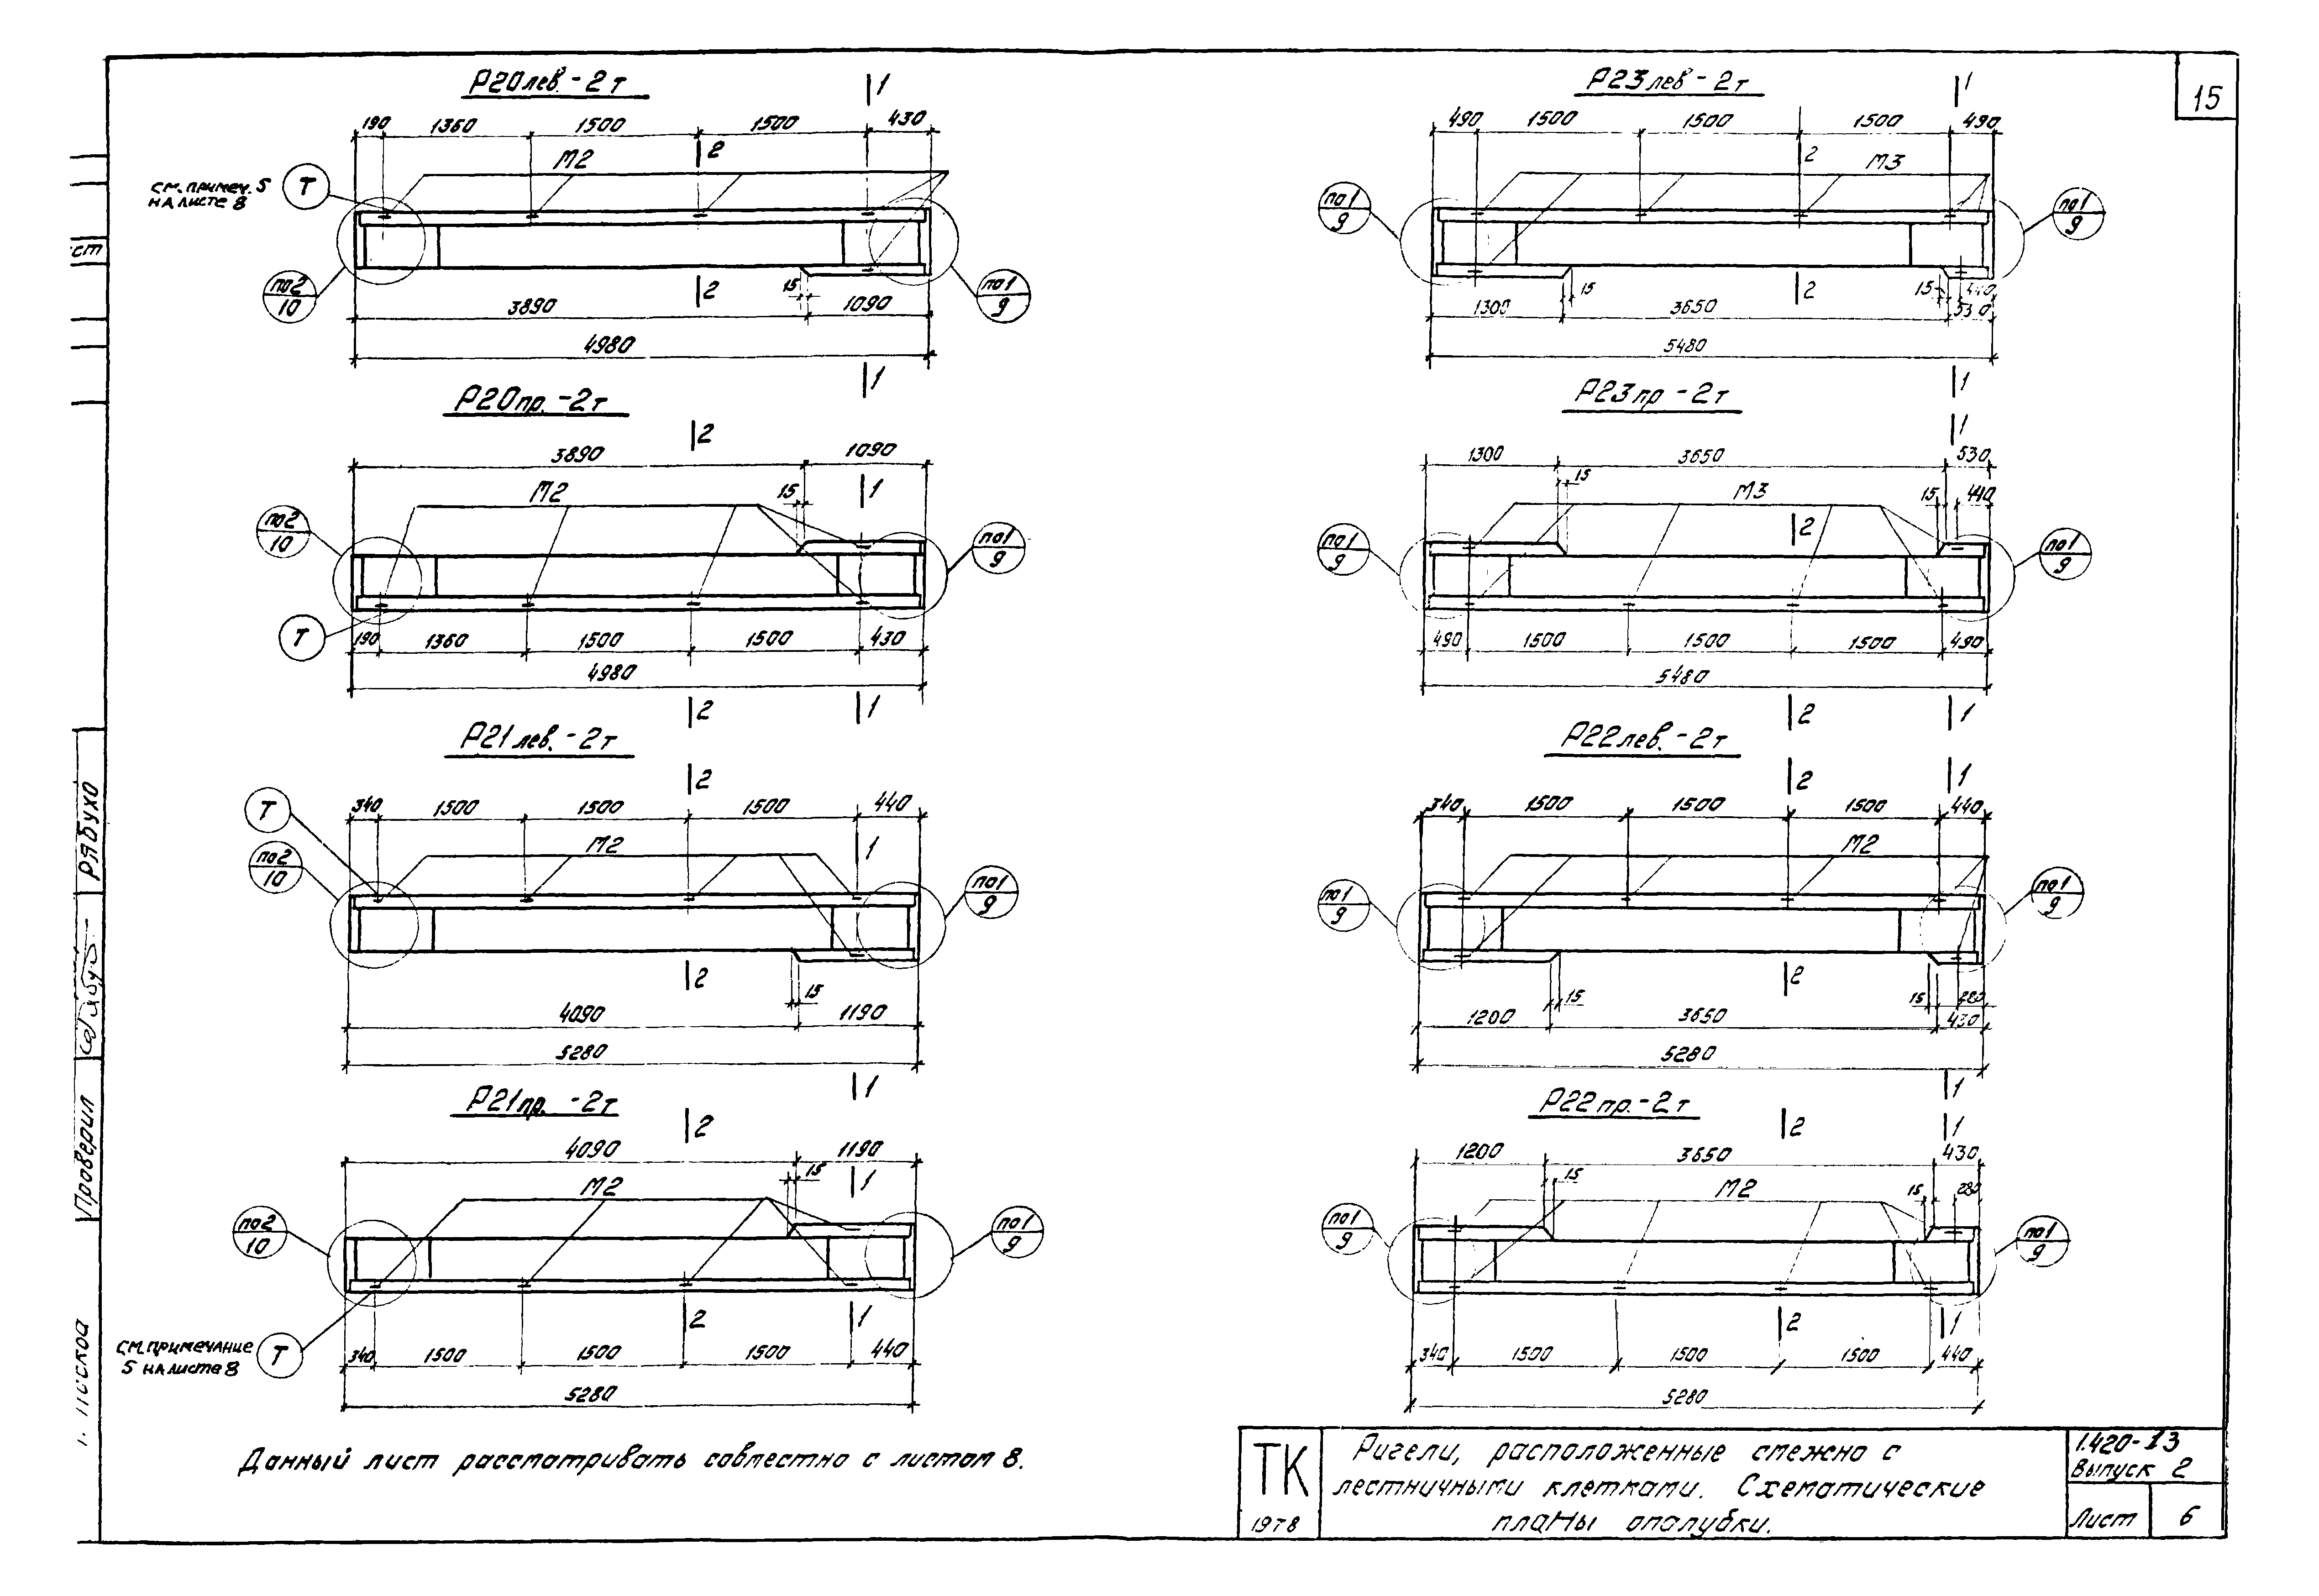 15
Р20лев.-2т
1
190 1360 1500 1500 430
М2
2
см. примеч. 5
на листе 8
Т
по2
10
по1
9
2
15
3890 1090
4980
1
Р20пр.-2т
2
3890 1090
М2
15
1
по2
10
по1
9
Т
190 1360 1500 1500 430
4980
2 1
Р21лев.-2т
2
Т
340 1500 1500 1500 440
М2
1
по2
10
по1
9
2
15
4090 1190
5280
1
Р21пр.-2т
2
4090 1190
15
М2
1
по2
10
по1
9
2 1
см. примечание
5 на листе 8
Т
340 1500 1500 1500 440
5280
Р23лев-2т
1
490 1500 1500 1500 490
2
М3
по1
9
по1
9
15 2 15 440
1300 3650 530
5480
1
Р23пр-2т
1
1300 3650 530
15
М3
15 440
2
по1
9
по1
9
490 1500 1500 1500 490
5480
2 1
Р22лев.-2т
2 1
340 1500 1500 1500 440
М2
по1
9
по1
9
2
15 15 280
1200 3650 430
5280
1
Р22пр.-2т
2 1
1200 3650 430
15
М2
15 280
по1
9
по1
9
2 1
340 1500 1500 1500 440
5280
Данный лист рассматривать совместно с листом 8.
ТК
1978
Ригели, расположенные смежно с
лестничными клетками. Схематические
планы опалубки.
1.420-13
Выпуск 2
Лист 6
Рябухо
Проверил